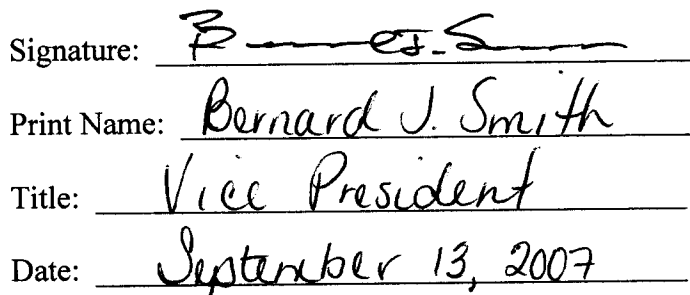 Signature:
Print Name: Bernard J. Smith
Title: Vice President
Date: September 13, 2007